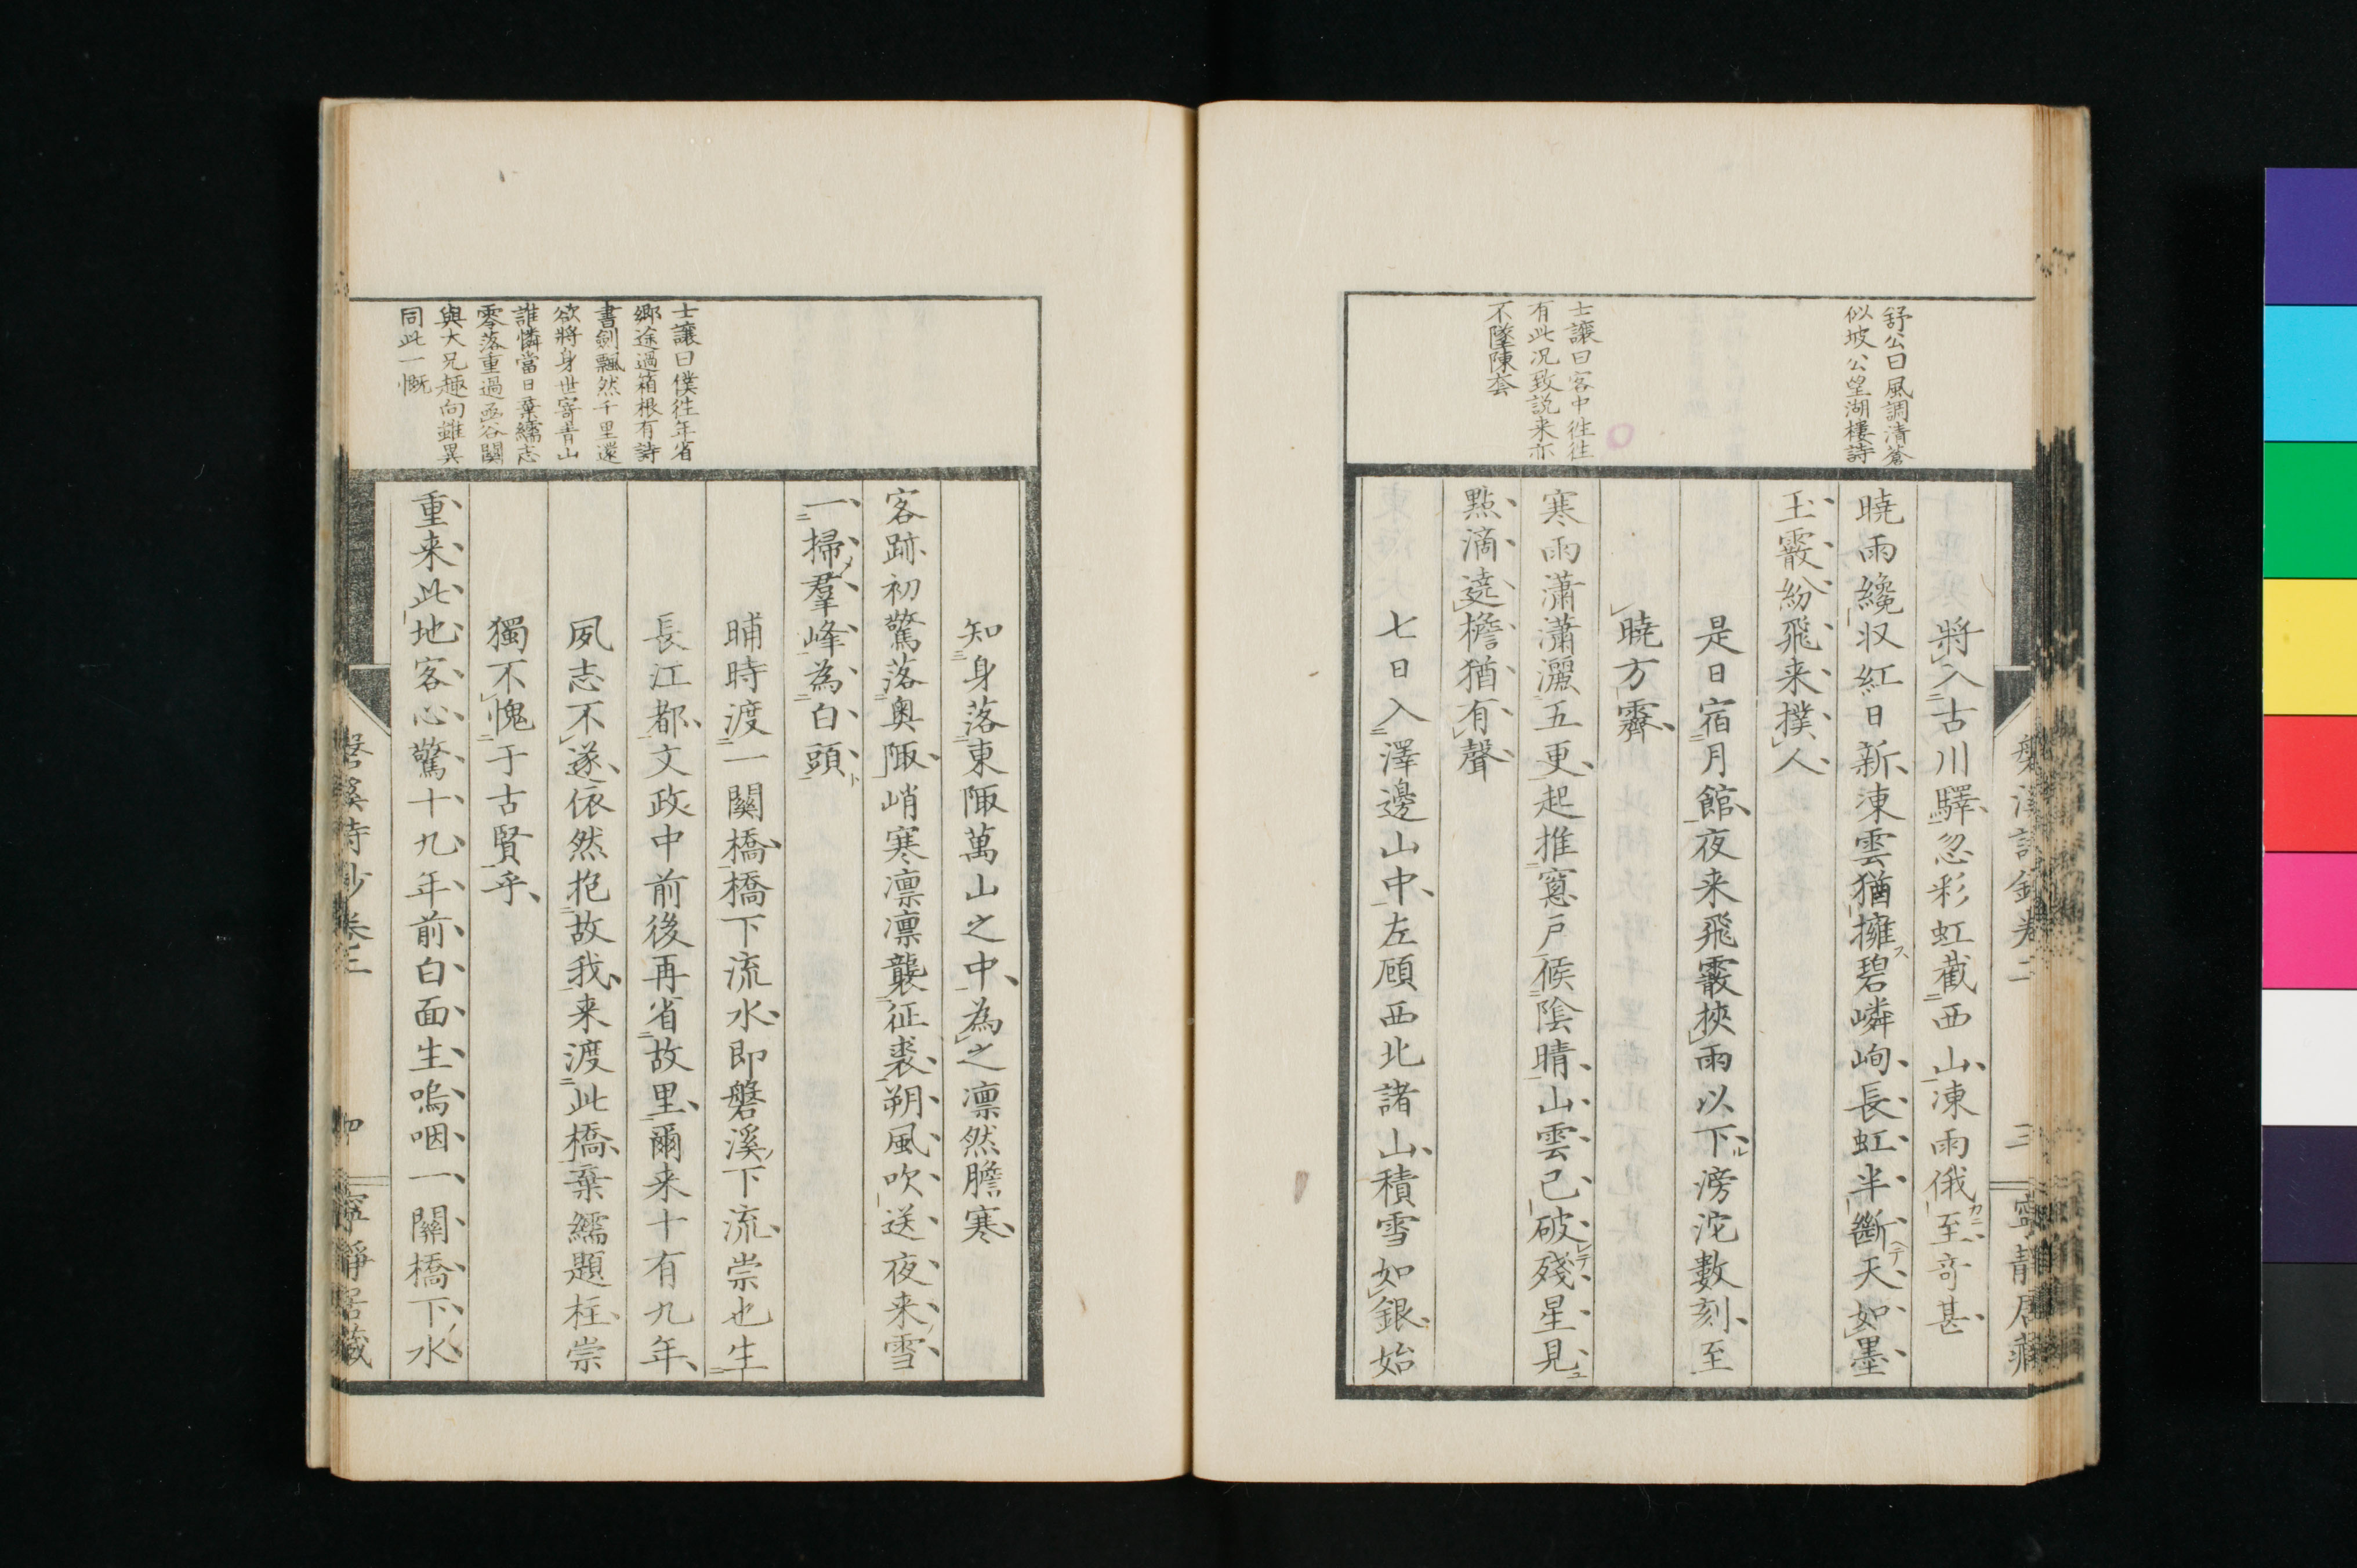 舒公曰風調清蒼
似坡公望湖樓詩
士讓曰客中往往
有此況致説来亦
不墜陳套
將入古川驛忽彩虹截西山凍雨俄至奇甚
暁雨纔収紅日新凍雲猶擁碧嶙峋長虹半斷天如墨
玉霰紛飛来撲人
是日宿月館夜来飛霰挾雨以下滂沱數刻至
暁方霽
寒雨瀟瀟灑五更起推窓戸候陰晴山雲已破殘星見
點滴遶檐猶有聲
七日入澤邊山中左顧西北諸山積雪如銀始
士讓曰僕往年省
郷途過箱根有詩
書劍飄然千里還
欲將身世寄青山
誰憐當日棄繻志
零落重過函谷關
與大兄趣向雖異
同此一慨
知身落東陬萬山之中為之凛然膽寒
客跡初驚落奥陬峭寒凛凛襲征裘朔風吹送夜来雪
一掃羣峰為白頭
晡時渡一關橋橋下流水即磐溪下流崇也生
長江都文政中前後再省故里爾来十有九年
夙志不遂依然抱故我来渡此橋棄繻題柱崇
獨不愧于古賢乎
重来此地客心驚十九年前白面生嗚咽一關橋下水
磐溪詩鈔卷二
寧靜居蔵